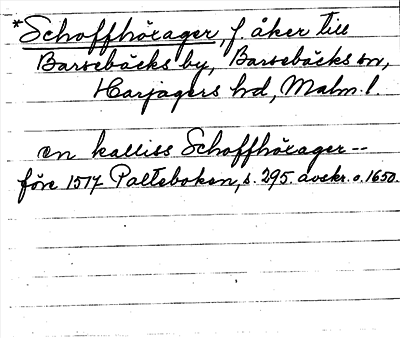 *Schoffhöxager, f. åker till
Barsebäcks by, Barsebäcks sn,
Harjagers hd, Malm. l.
en kalliss Schoffhöxager --
före 1517 Palteboken, s. 295. avskr. o. 1650.